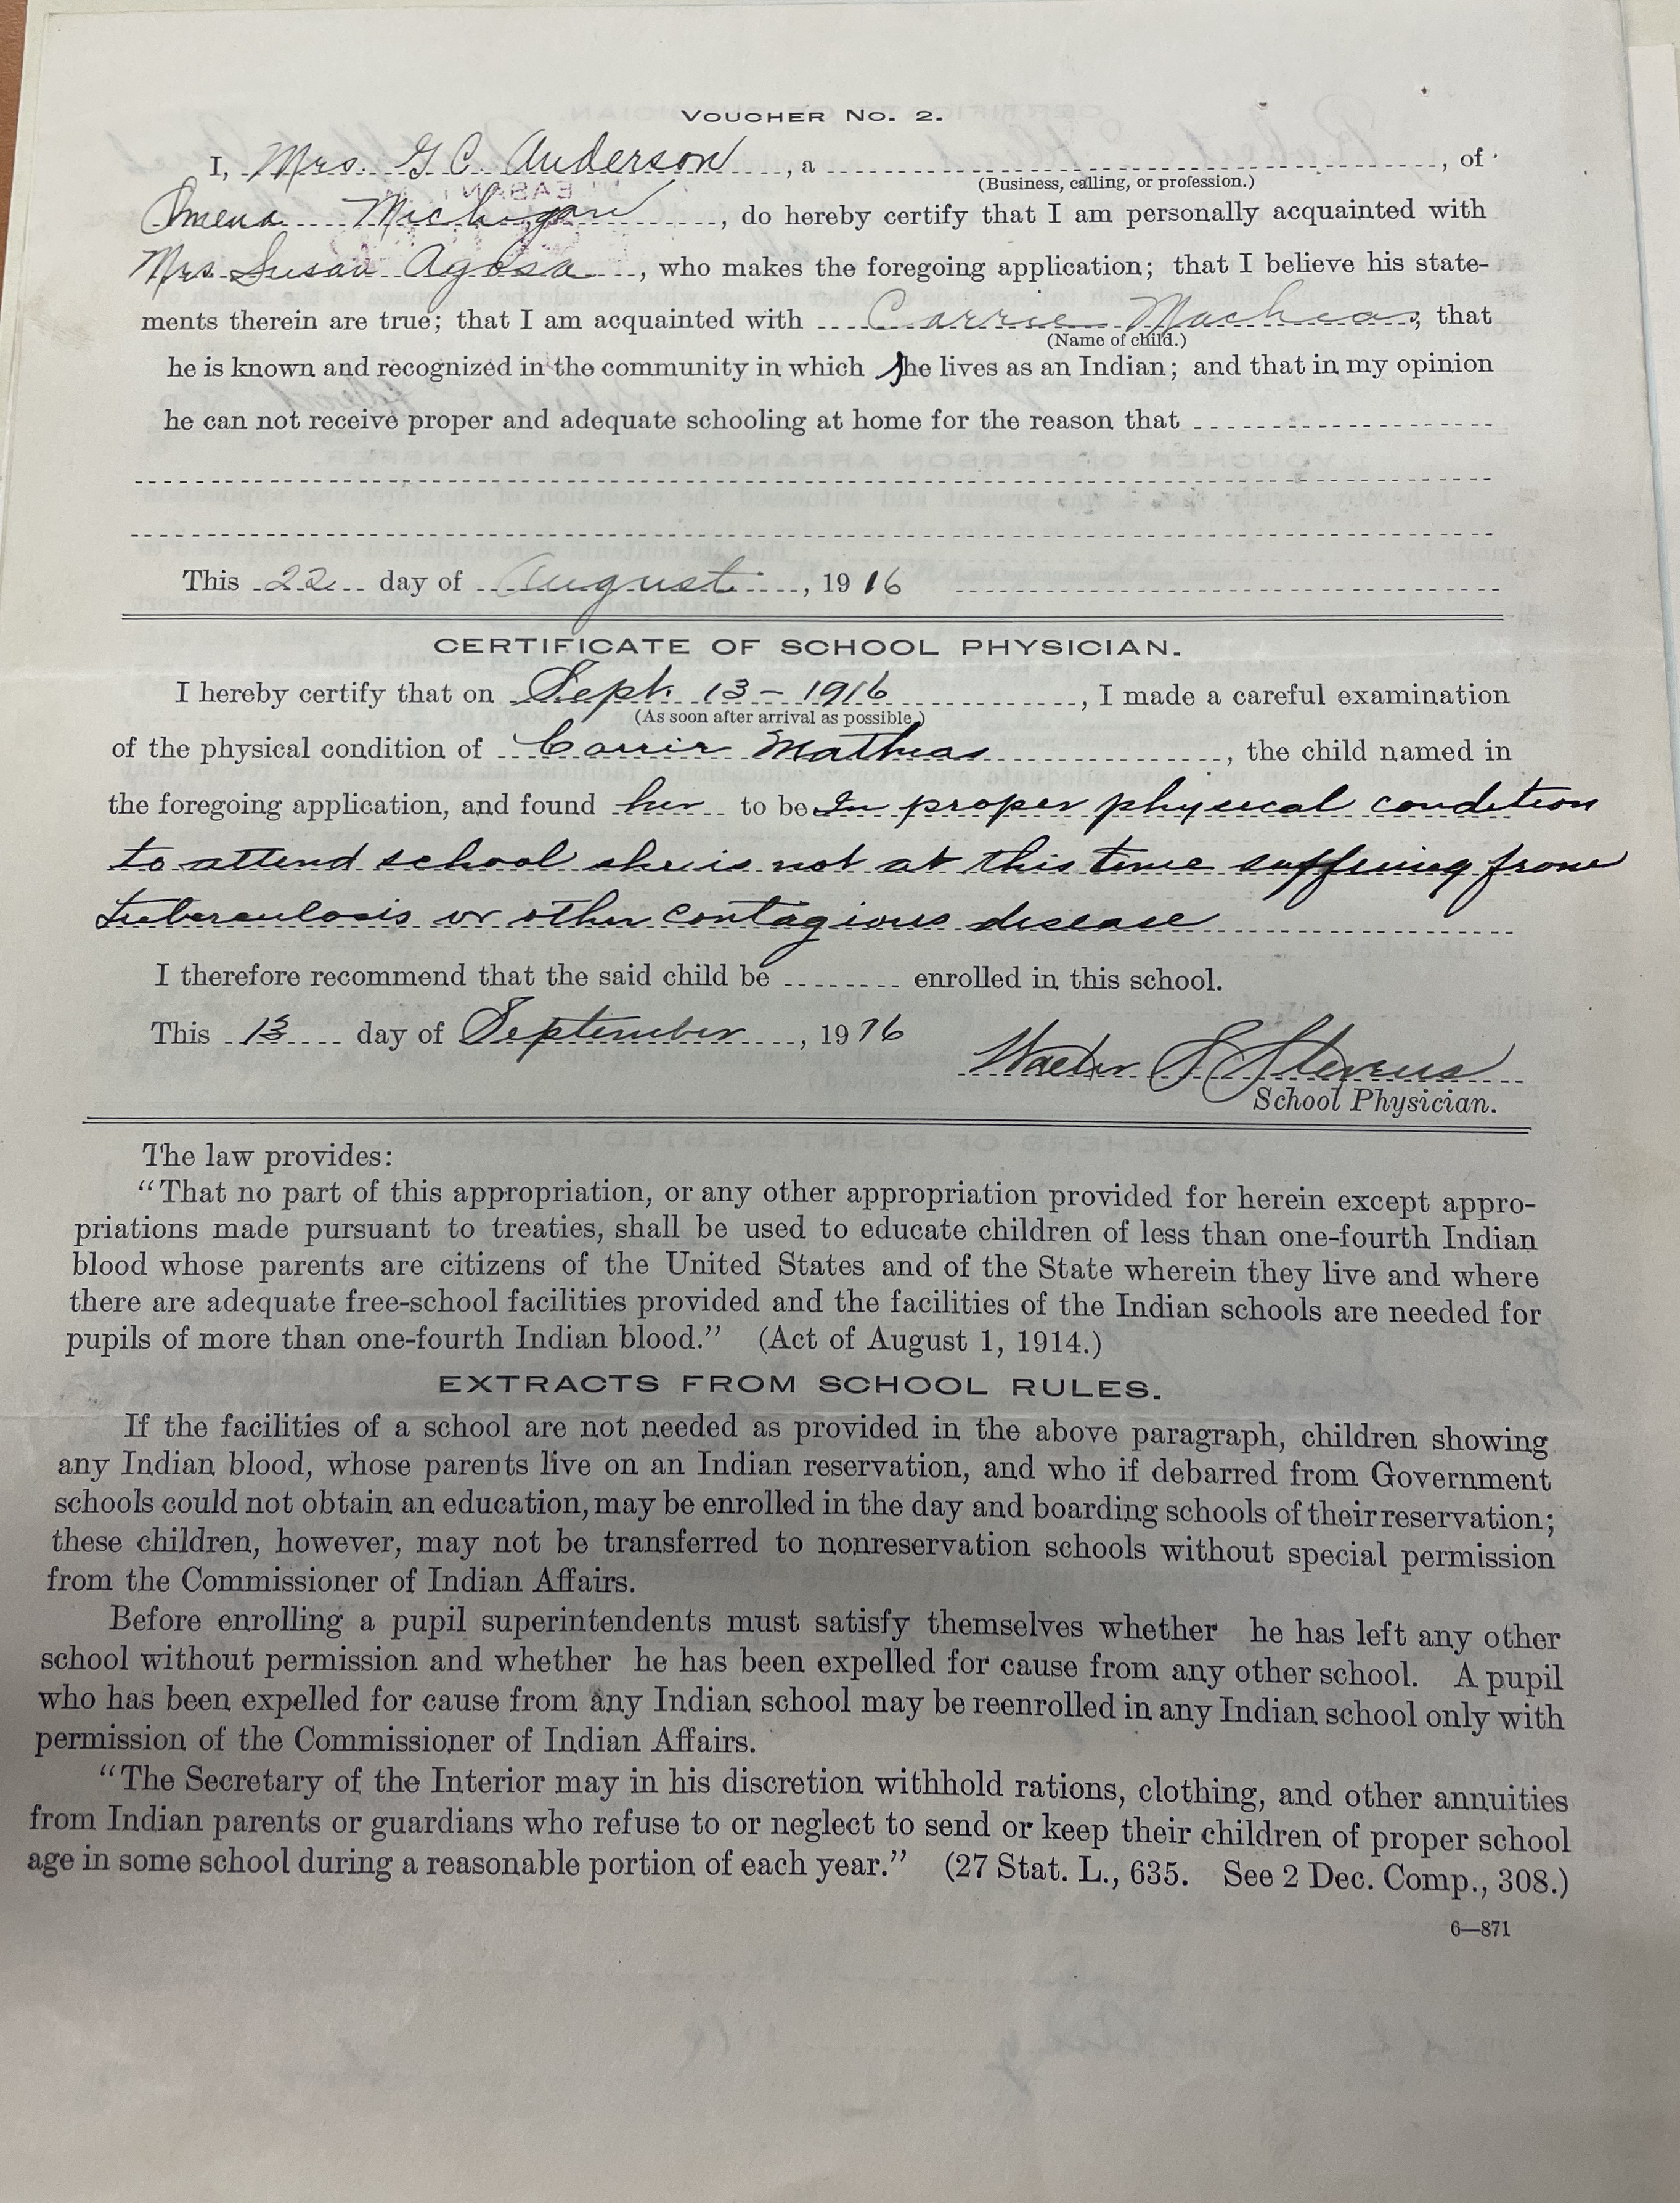 VOUCHER No. 2.
I, Mrs. G C Anderson, a , of
(Business, calling, or profession.)
Omena Michigan, do hereby certify that I am personally acquainted with
Mrs. Susan Agosa, who makes the foregoing application; that I believe his state-
ments therein are true; that I am acquainted with Carrie Mathias, that
(Name of child.)
he is known and recognized in the community in which she lives as an Indian; and that in my opinion
he can not receive proper and adequate schooling at home for the reason that
This 22 day of August, 1916
CERTIFICATE OF SCHOOL PHYSICIAN.
I hereby certify that on Sept. 13 - 1916, I made a careful examination
(As soon after arrival as possible.)
of the physical condition of Carrie Mathias, the child named in
the foregoing application, and found her to be In proper physical condition
to attend school she is not at this time suffering from
tuberculosis or other contagious disease
I therefore recommend that the said child be enrolled in this school.
This 13 day of September, 1916
Walter S Stevens
School Physician.
The law provides:
"That no part of this appropriation, or any other appropriation provided for herein except appro-
priations made pursuant to treaties, shall be used to educate children of less than one-fourth Indian
blood whose parents are citizens of the United States and of the State wherein they live and where
there are adequate free-school facilities provided and the facilities of the Indian schools are needed for
pupils of more than one-fourth Indian blood." (Act of August 1, 1914.)
EXTRACTS FROM SCHOOL RULES.
If the facilities of a school are not needed as provided in the above paragraph, children showing
any Indian blood, whose parents live on an Indian reservation, and who if debarred from Government
schools could not obtain an education, may be enrolled in the day and boarding schools of their reservation;
these children, however, may not be transferred to nonreservation schools without special permission
from the Commissioner of Indian Affairs.
Before enrolling a pupil superintendents must satisfy themselves whether he has left any other
school without permission and whether he has been expelled for cause from any other school. A pupil
who has been expelled for cause from any Indian school may be reenrolled in any Indian school only with
permission of the Commissioner of Indian Affairs.
"The Secretary of the Interior may in his discretion withhold rations, clothing, and other annuities
from Indian parents or guardians who refuse to or neglect to send or keep their children of proper school
age in some school during a reasonable portion of each year." (27 Stat. L., 635. See 2 Dec. Comp., 308.)
6—871